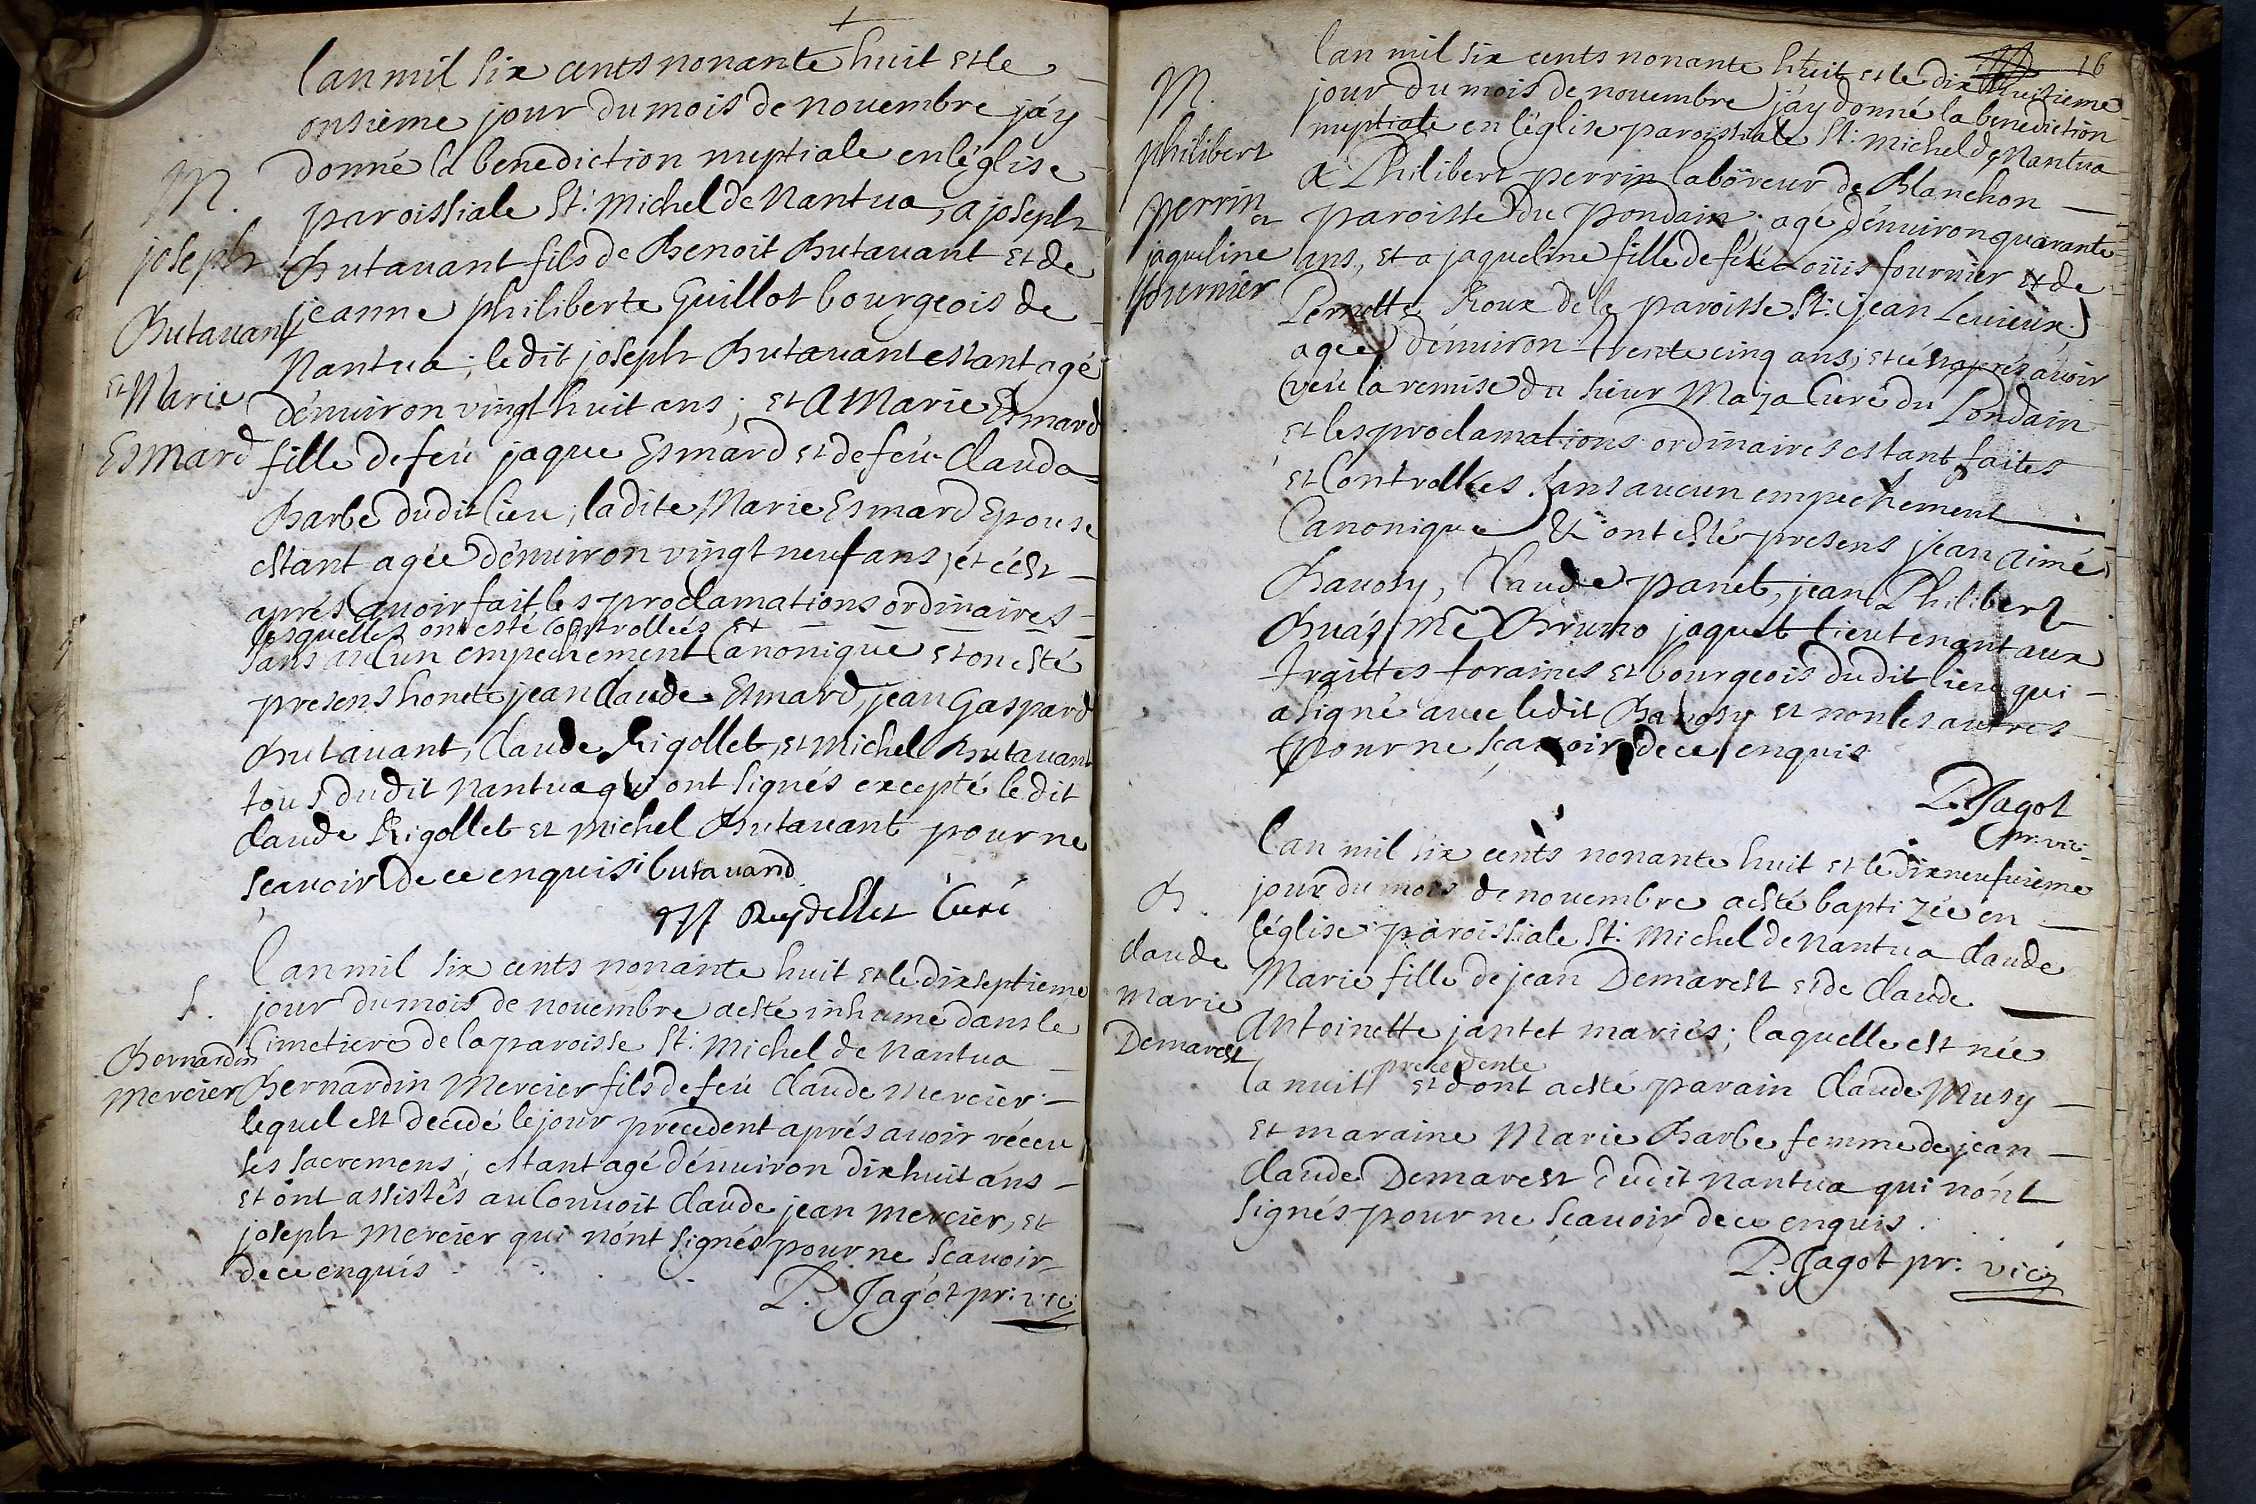 lan mil six cents nonante huit et le
onsième jour du mois de novembre j'ay
donné la benediction nuptiale en l'église
M.
paroissiale St: Michel de Nantua, a joseph
joseph
Butavant fils de Benoit Butavant et de
jeanne philiberte Guillot bourgeois de
Butavant
Nantua; ledit joseph Butavant estant agé
et Marie
d'environ vingt huit ans; et a Marie Esmard
Esmard
fille de feu jaque Esmard et de feu Clauda
Barbe dudit lieu; ladite Marie Esmard Epouse
estant agée d'environ vingt neuf ans, et c'est
aprés avoir fait les proclamations ordinaires
lesquelles ont esté controllées et
sans aucun empechement Canonique et on esté
presens honete jean Claude Esmard, jean Gaspard
Butavant, Claude Rigollet, et Michel Butavant
tous dudit Nantua qui ont signés excepté ledit
Claude Rigollet et Michel Butavant pour ne
sçavoir de ce enquis butavand
Reydellet Curé
lan mil six cents nonante huit et le dixseptieme
S.
jour du mois de novembre a esté inhumé dans le
Cimetiere de la paroisse St: Michel de Nantua
Bernardin
Mercier
Bernardin Mercier fils de feu Claude Mercier;
lequel est decedé le jour precedent aprés avoir réceu
les sacremens; estant agé d'environ dixhuit ans
et ont assistés au Convoit Claude jean Mercier, et
joseph Mercier qui n'ont signés pour ne scavoir
de ce enquis
P. Jagot pr: vic:
16
lan mil six cents nonante huit et le dix huitieme
M.
jour du mois de novembre j'ay donné la benediction
nuptiale en l'église paroissiale St: Michel de Nantua
philibert
a Philibert perrin laboreur de Blanchon
perrin et
paroisse du pondain; agé d'environ quarante
jaqueline
ans, et a jaqueline fille de feu Loüis fournier et de
fournier
Pernette Roux de la paroisse St: jean Levieux;
agée d'environ trente cinq ans; et c'est aprés avoir
veu la remise du sieur Maja Curé du Pondain
et les proclamations ordinaires estant faites
et Controllées sans aucun empechement
Canonique & ont esté presens jean aimé
Bavosy, Claude panet, jean Philibert
Buás, me Bruno jaquet lieutenant aux
traittes foraines et bourgeois dudit lieu qui
a signé avec ledit Bavosy et non les autres
pour ne sçavoir de ce enquis
P. Jagot
pr: vic:
lan mil six cents nonante huit et le dixneufvieme
B.
jour du mois de novembre a esté baptizée en
l'église paroissiale St: Michel de Nantua Claude
Claude
Marie
Marie fille de jean Demarest et de Claude
Demarest
Antoinette jantet mariés; laquelle est née
precedente
la nuit et dont a esté parain Claude Musy
et maraine Marie Barbe femme de jean
Claude Demarest dudit Nantua qui n'ont
signés pour ne sçavoir de ce enquis.
P. Jagot pr: vic: